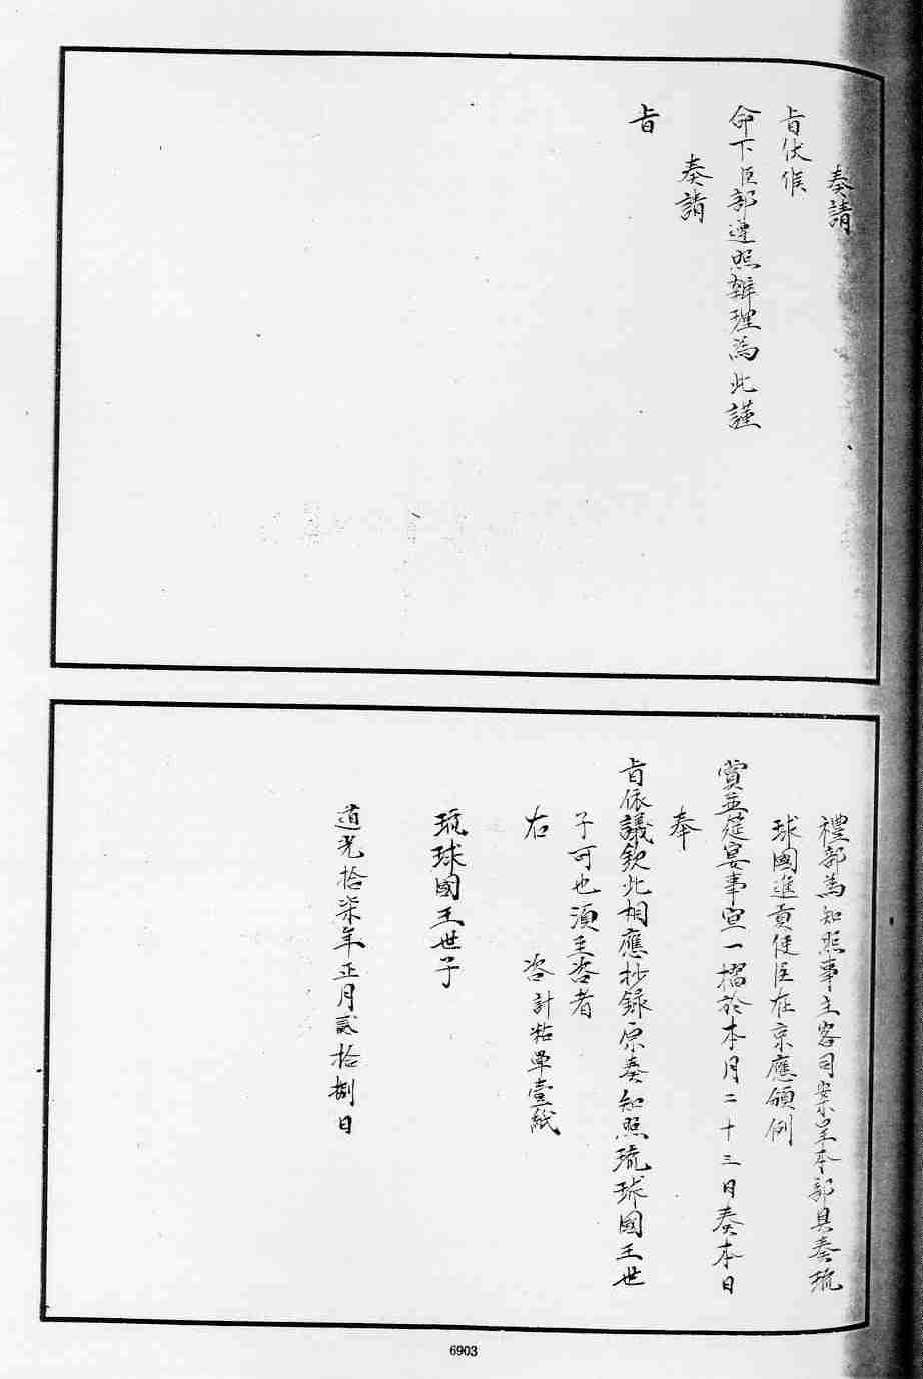 奏請
旨伏候
命下臣部遵照辦理為此謹
奏請
旨
禮部為知照事主客司案呈本部具奏琉
球國進貢使臣在京應頒例
賞並筵宴事宜一摺於本月二十三日奏本日
奉
旨依議欽此相應抄錄原奏知照琉球國王世
子可也須至咨者
右 咨計粘單壹紙
琉球國王世子
道光拾柒年正月貳拾捌日
6903